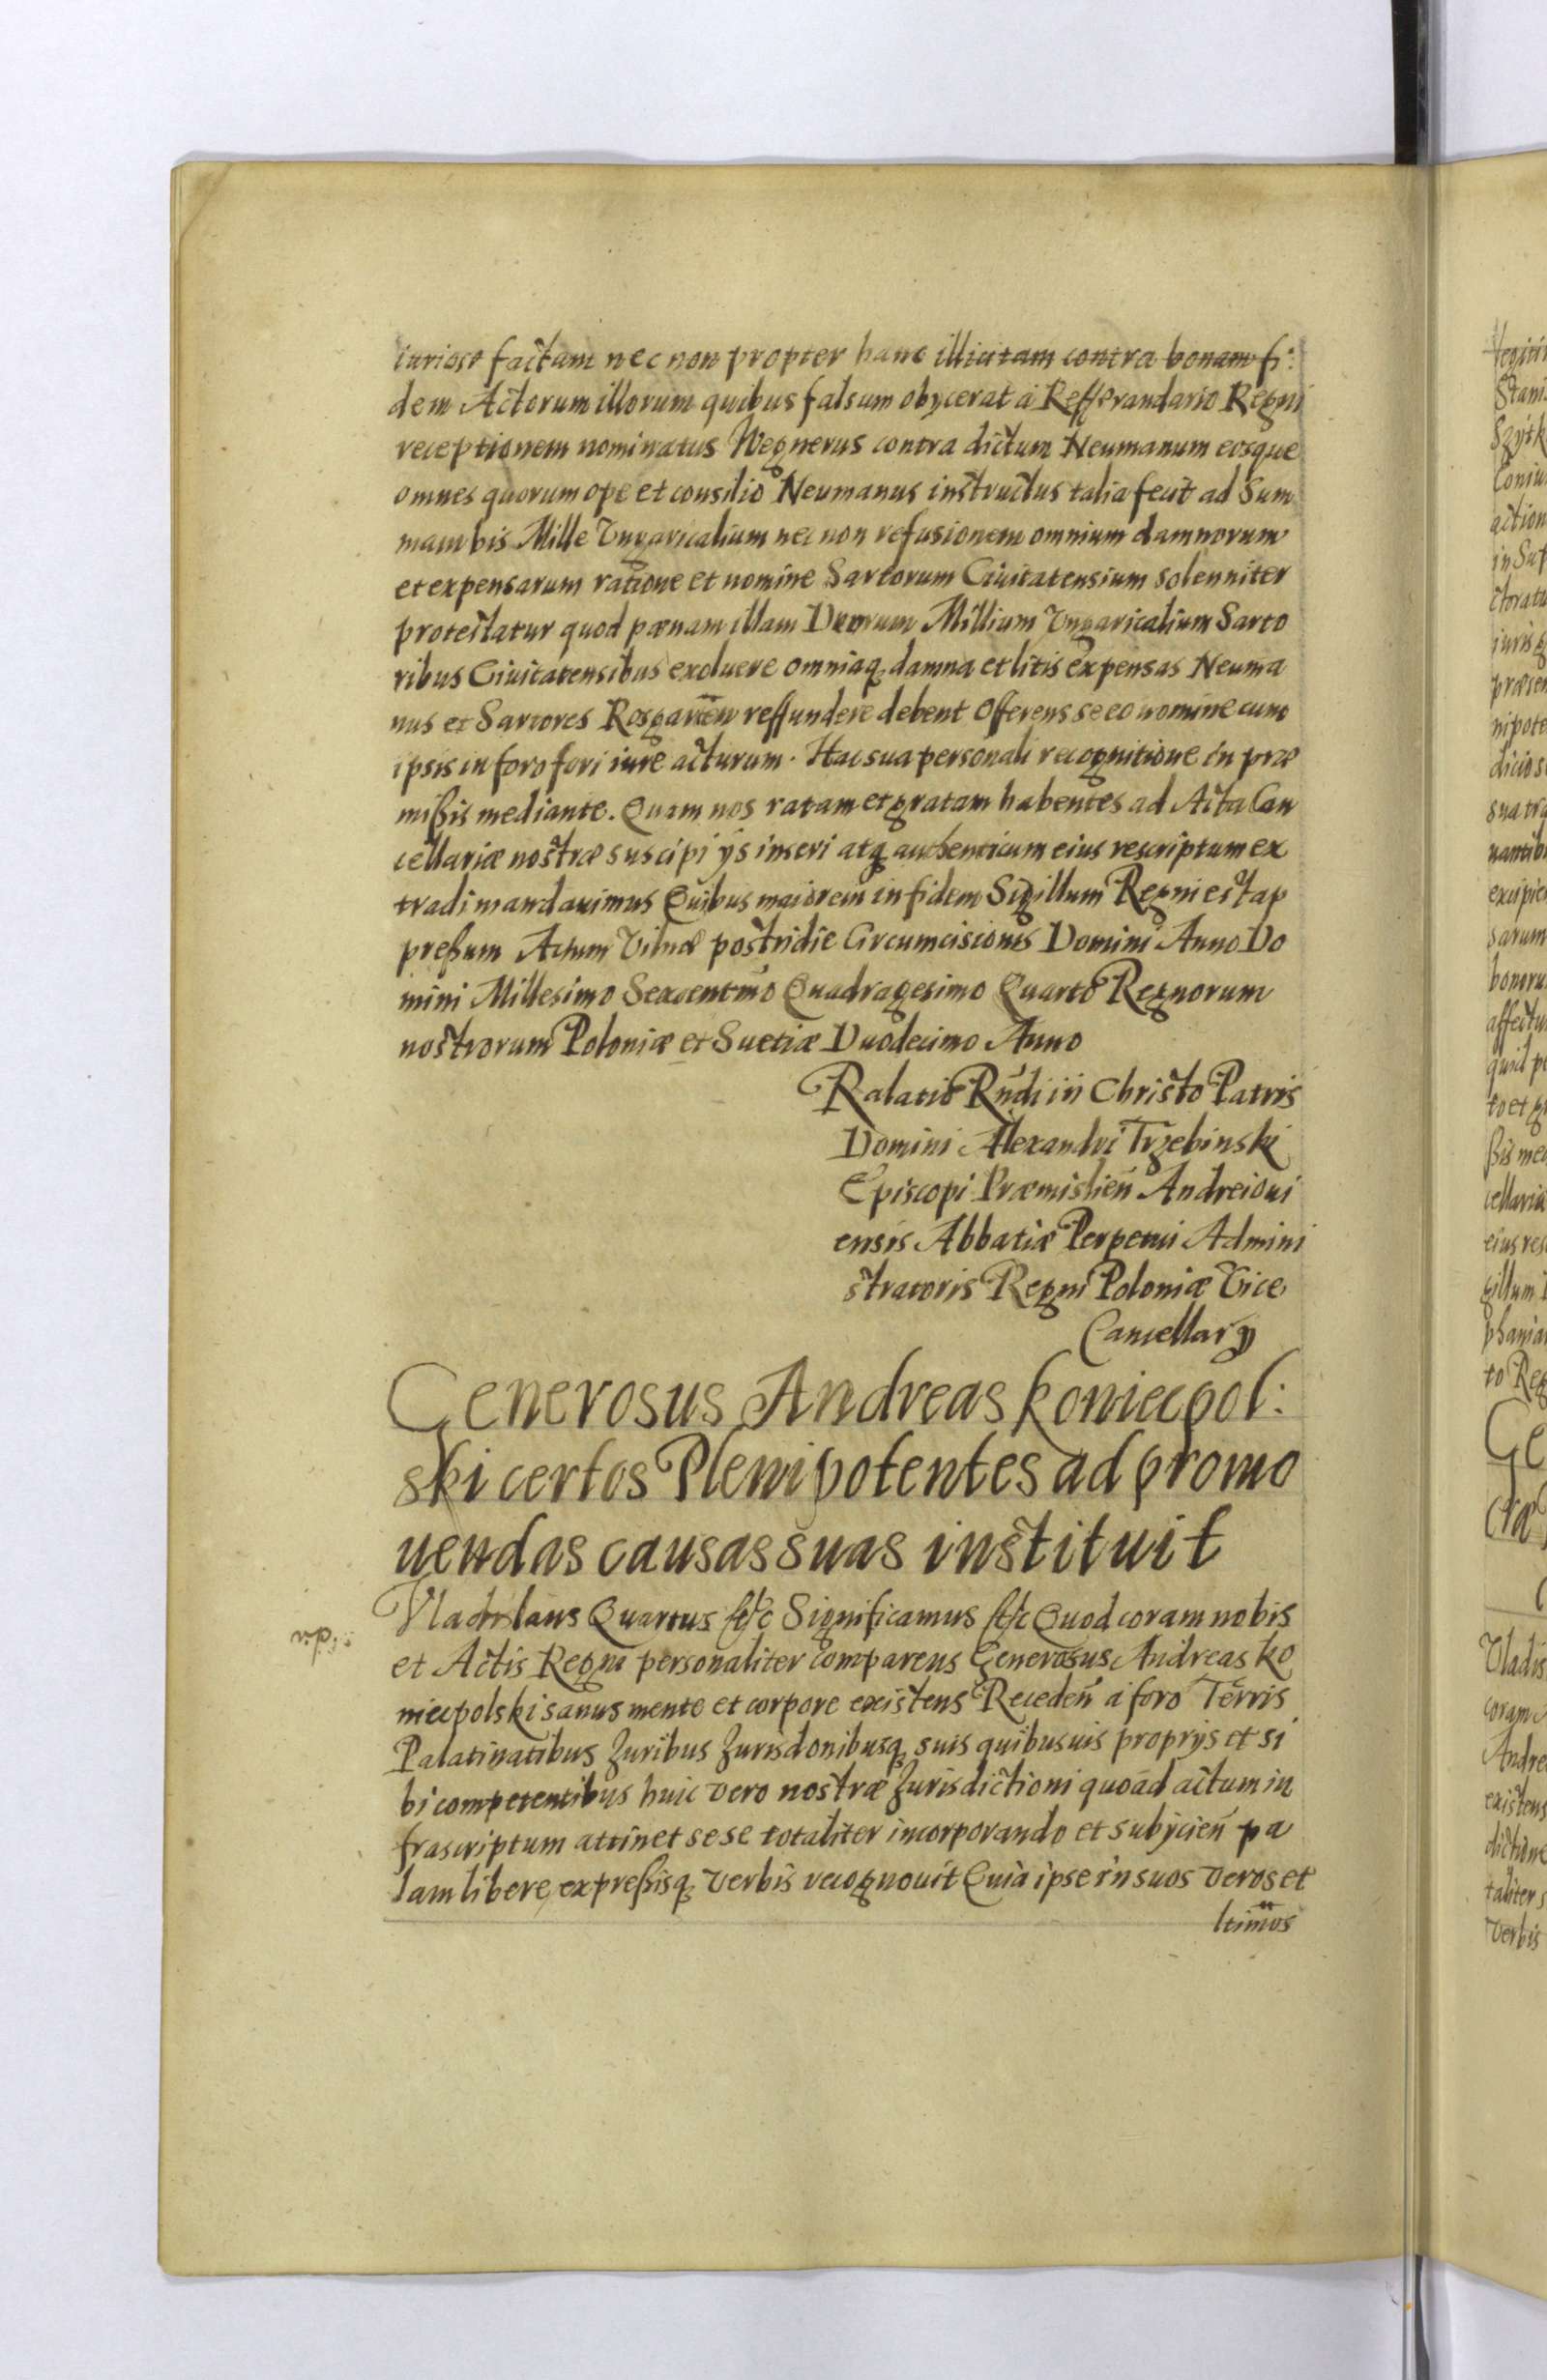 iuriose factam nec non propter hanc illicitam contra bonam fi:
dem Actorum illorum quibus falsum obycerat a Refferandario Regni
receptionem nominatus Wegnerus contra dictum Neumanum eosque
omnes quorum ope et consilio Neumanus instructus talia fecit ad Sum
mam bis Mille Vngaricalium nec non refusionem omnium damnorum
et expensarum ratione et nomine Sartorum Ciuitatensium solenniter
protestatur quod pænam illam Duorum Millium Vngaricalium Sarto
ribus Ciuitatensibus exoluere omniaq damna et litis expensas Neuma
nus et Sartores Rosgarten reffundere debent Offerens se eo nomine cum
ipsis in foro fori iure acturum. Hac sua personali recognitione in præ
mißis mediante. Quam nos ratam et gratam habentes ad Acta Can
cellariæ nostræ suscipi ys inseri atq authenticum eius rescriptum ex
tradi mandauimus Quibus maiorem in fidem Sigillum Regni est ap
preßum Actum Vilnæ postridie Circumcisionis Domini Anno Do
mini Millesimo Sexcentmo Quadragesimo Quarto Regnorum
nostrorum Poloniæ et Suetiæ Duodecimo Anno
Ralatio Rndi in Christo Patris
Domini Alexandri Trzebinski
Episcopi Præmislien Andreioui
ensis Abbatiæ Perpetui Admini
stratoris Regni Poloniæ Vice
Cancellary
Generosus Andreas Koniecpol:
ski certos Plenipotentes ad promo
uendas causas suas instituit
Vladislaus Quartus &c Significamus &c Quod coram nobis
et Actis Regni personaliter comparens Generosus Andreas Ko
niecpolski sanus mente et corpore existens Receden a foro Terris
Palatinatibus Juribus Jurisdonibusq suis quibusuis proprys et si
bi competentibus huic vero nostræ Jurisdictioni quoad actum in
frascriptum attinet sese totaliter incorporando et subycien pa
lam libere expreßisq verbis recognouit Quia ipse in suos veros et
ltimos